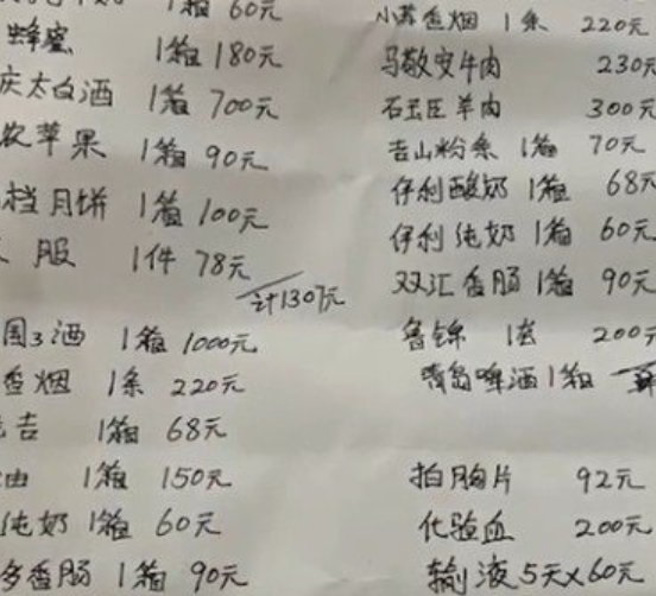 1箱 60元
蜂蜜 1箱 180元
庆太白酒 1箱 700元
农苹果 1箱 90元
档月饼 1箱 100元
服 1件 78元
计1307元
国3酒 1箱 1000元
香烟 1条 220元
吉 1箱 68元
油 1箱 150元
纯奶 1箱 60元
多香肠 1箱 90元
小苏香烟 1条 220元
马敬安牛肉 230元
石玉臣羊肉 300元
吉山粉条 1箱 70元
伊利酸奶 1箱 68元
伊利纯奶 1箱 60元
双汇香肠 1箱 90元
鲁锦 1套 200元
青岛啤酒 1箱
拍胸片 92元
化验血 200元
输液5天×60元